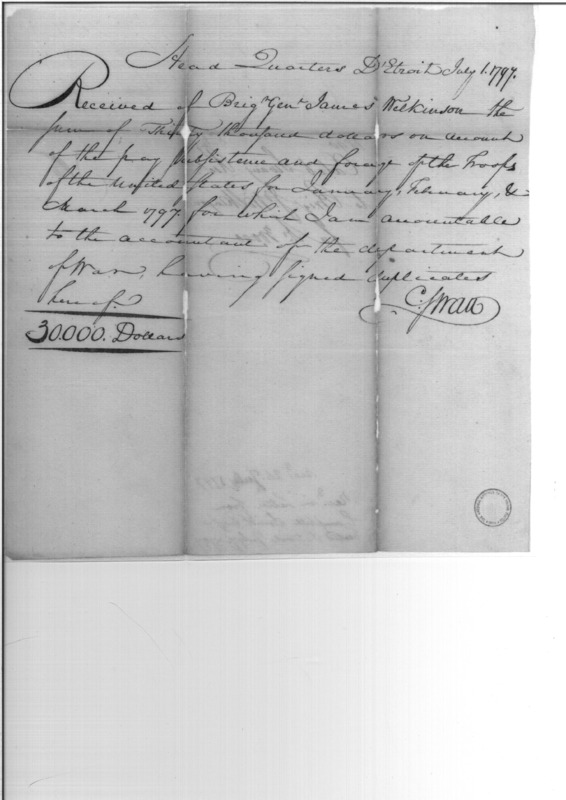 Head Quarters D'Etroit July 1. 1797.
Received of Brigr. Genl. James Wilkinson the
sum of Thirty thousand dollars on account
of the pay subsistence and forage of the Troops
of the United States for January, February, &
March 1797. for which I am accountable
to the accountant of the department
of War, having signed duplicates
hereof.
C. Swan
30.000. Dollars